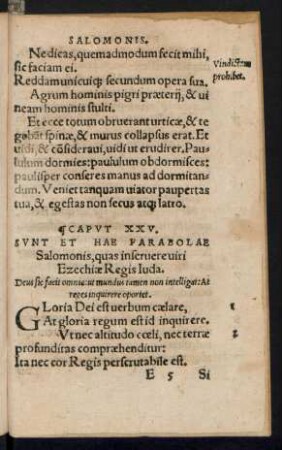 SALOMONIS.
Ne dicas, quemadmodum fecit mihi,
sic faciam ei.
Vindictam
prohibet.
Reddam unicuiq; secundum opera sua.
Agrum hominis pigri præterij, & ui
neam hominis stulti.
Et ecce totum obruerant urticæ, & te
gebāt spinæ, & murus collapsus erat. Et
uidi, & cōsideraui, uidi ut erudirer. Pau-
lulum dormies: paululum obdormisces:
paulisper conseres manus ad dormitan-
dum. Veniet tanquam uiator paupertas
tua, & egestas non secus atq; latro.
¶CAPVT XXV.
SVNT ET HAE PARABOLAE
Salomonis, quas inseruere uiri
Ezechiæ Regis Iuda.
Deus sic facit omnia: ut mundus tamen non intelligat: At
reges inquirere oportet.
GLoria Dei est uerbum cælare,
At gloria regum est id inquirere.
Vt nec altitudo cœli, nec terræ
profunditas compræhenditur:
Ita nec cor Regis perscrutabile est.
1
2
E 5 Si